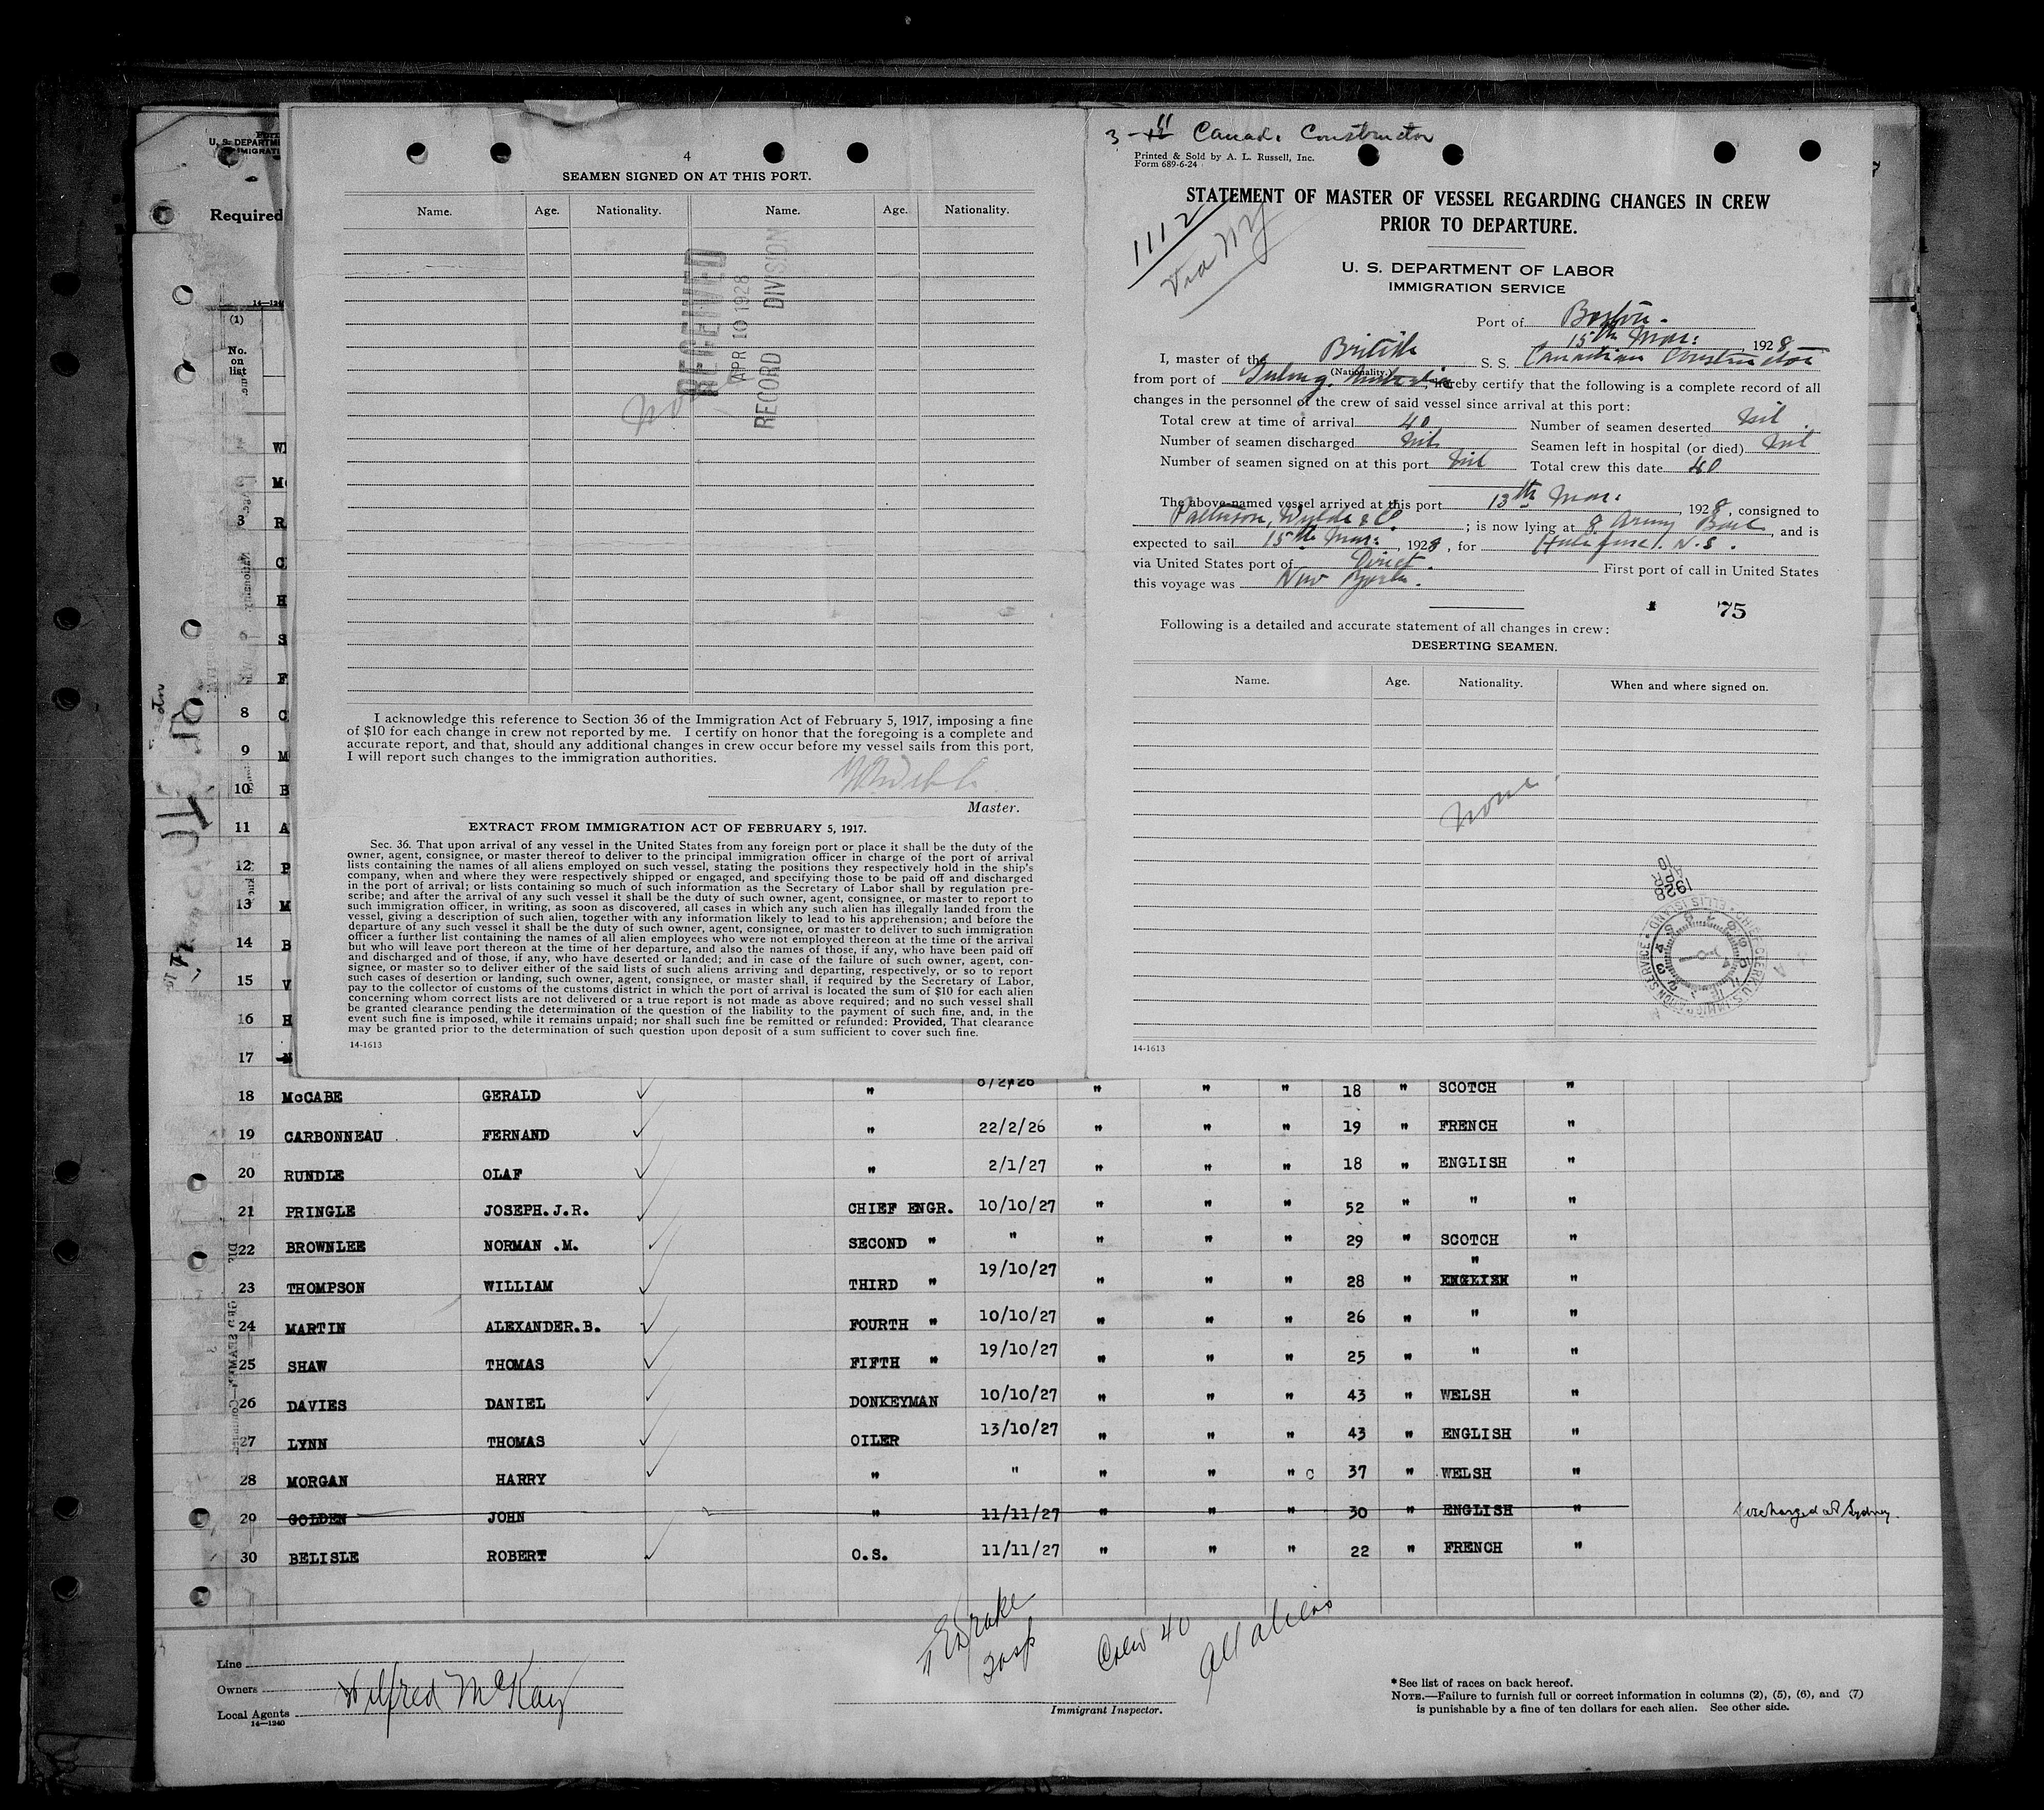 FORM
U. S. DEPARTM
IMMIGRATI
Required
14—124
(1)
No.
on
list
4
SEAMEN SIGNED ON AT THIS PORT.
Name. Age. Nationality. Name. Age. Nationality.
RECEIVED
APR 10 1928
RECORD DIVISION
No
I acknowledge this reference to Section 36 of the Immigration Act of February 5, 1917, imposing a fine
of $10 for each change in crew not reported by me. I certify on honor that the foregoing is a complete and
accurate report, and that, should any additional changes in crew occur before my vessel sails from this port,
I will report such changes to the immigration authorities.
Master.
EXTRACT FROM IMMIGRATION ACT OF FEBRUARY 5, 1917.
Sec. 36. That upon arrival of any vessel in the United States from any foreign port or place it shall be the duty of the
owner, agent, consignee, or master thereof to deliver to the principal immigration officer in charge of the port of arrival
lists containing the names of all aliens employed on such vessel, stating the positions they respectively hold in the ship's
company, when and where they were respectively shipped or engaged, and specifying those to be paid off and discharged
in the port of arrival; or lists containing so much of such information as the Secretary of Labor shall by regulation pre-
scribe; and after the arrival of any such vessel it shall be the duty of such owner, agent, consignee, or master to report to
such immigration officer, in writing, as soon as discovered, all cases in which any such alien has illegally landed from the
vessel, giving a description of such alien, together with any information likely to lead to his apprehension; and before the
departure of any such vessel it shall be the duty of such owner, agent, consignee, or master to deliver to such immigration
officer a further list containing the names of all alien employees who were not employed thereon at the time of the arrival
but who will leave port thereon at the time of her departure, and also the names of those, if any, who have been paid off
and discharged and of those, if any, who have deserted or landed; and in case of the failure of such owner, agent, con-
signee, or master so to deliver either of the said lists of such aliens arriving and departing, respectively, or so to report
such cases of desertion or landing, such owner, agent, consignee, or master shall, if required by the Secretary of Labor,
pay to the collector of customs of the customs district in which the port of arrival is located the sum of $10 for each alien
concerning whom correct lists are not delivered or a true report is not made as above required; and no such vessel shall
be granted clearance pending the determination of the question of the liability to the payment of such fine, and, in the
event such fine is imposed, while it remains unpaid; nor shall such fine be remitted or refunded: Provided, That clearance
may be granted prior to the determination of such question upon deposit of a sum sufficient to cover such fine.
14-1613
Canad. Constructor
Printed & Sold by A. L. Russell, Inc.
Form 689-6-24
STATEMENT OF MASTER OF VESSEL REGARDING CHANGES IN CREW
PRIOR TO DEPARTURE.
1112
Via NY
U. S. DEPARTMENT OF LABOR
IMMIGRATION SERVICE
Port of Boston.
15th Mar. , 1928
I, master of the British S. S. Canadian Constructor
(Nationality.)
from port of Australia, hereby certify that the following is a complete record of all
changes in the personnel of the crew of said vessel since arrival at this port:
Total crew at time of arrival 40 Number of seamen deserted Nil.
Number of seamen discharged Nil Seamen left in hospital (or died) Nil
Number of seamen signed on at this port Nil Total crew this date 40
The above-named vessel arrived at this port 13th Mar. , 1928, consigned to
Patterson, Wylde & Co. ; is now lying at 8 Army Base, and is
expected to sail 15th Mar. , 1928, for Halifax. N.S.
via United States port of Direct. First port of call in United States
this voyage was New York.
75
Following is a detailed and accurate statement of all changes in crew:
DESERTING SEAMEN.
Name. Age. Nationality. When and where signed on.
None
1928
APR
10
CHIEF CLERK U.S. IMMIGRATION SERVICE ELLIS ISLAND
14-1613
3 R
8
9 M
10 B
11 A
12 P
13 M
14 B
15 V
16 H
17
18 McCABE GERALD " " " " 18 " SCOTCH "
19 CARBONNEAU FERNAND " 22/2/26 " " " 19 " FRENCH "
20 RUNDLE OLAF " 2/1/27 " " " 18 " ENGLISH "
21 PRINGLE JOSEPH.J.R. CHIEF ENGR. 10/10/27 " " " 52 " " "
22 BROWNLEE NORMAN .M. SECOND " " " " " 29 " SCOTCH "
23 THOMPSON WILLIAM THIRD " 19/10/27 " " " 28 " " ENGLISH "
24 MARTIN ALEXANDER.B. FOURTH " 10/10/27 " " " 26 " " "
25 SHAW THOMAS FIFTH " 19/10/27 " " " 25 " " "
26 DAVIES DANIEL DONKEYMAN 10/10/27 " " " 43 " WELSH "
27 LYNN THOMAS OILER 13/10/27 " " " 43 " ENGLISH "
28 MORGAN HARRY " " " " " C 37 " WELSH "
29 GOLDEN JOHN " 11/11/27 " " " 30 " ENGLISH " Discharged at Sydney.
30 BELISLE ROBERT O.S. 11/11/27 " " " 22 " FRENCH "
Drake
Insp
Crew 40
All aliens
Line
Owners
Local Agents
Wilfred McKay
14—1240
Immigrant Inspector.
* See list of races on back hereof.
NOTE.—Failure to furnish full or correct information in columns (2), (5), (6), and (7)
is punishable by a fine of ten dollars for each alien. See other side.